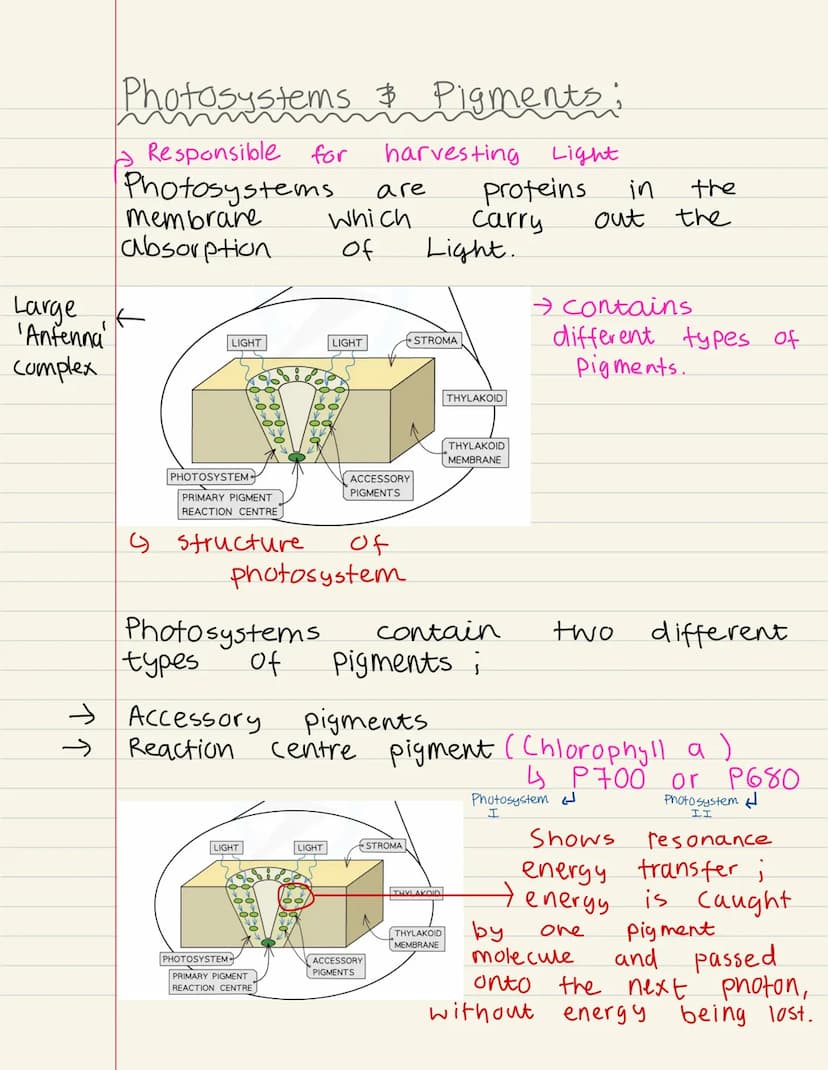 Photosystems & Pigments;
Responsible for harvesting Light
Photosystems are proteins in the
membrane which carry out the
absorption of Light.
Large
'Antenna'
complex
LIGHT
LIGHT
STROMA
THYLAKOID
THYLAKOID
MEMBRANE
PHOTOSYSTEM
ACCESSORY
PIGMENTS
PRIMARY PIGMENT
REACTION CENTRE
→ contains
different types of
pigments.
↳ structure of
photosystem
Photosystems contain two different
types of pigments;
→ Accessory pigments
→ Reaction centre pigment (Chlorophyll a)
↳ P700 or P680
Photosystem
I
Photosystem
II
LIGHT
LIGHT
STROMA
THYLAKOID
THYLAKOID
MEMBRANE
PHOTOSYSTEM
ACCESSORY
PIGMENTS
PRIMARY PIGMENT
REACTION CENTRE
Shows resonance
energy transfer;
energy is caught
by one pigment
molecule and passed
onto the next photon,
without energy being lost.